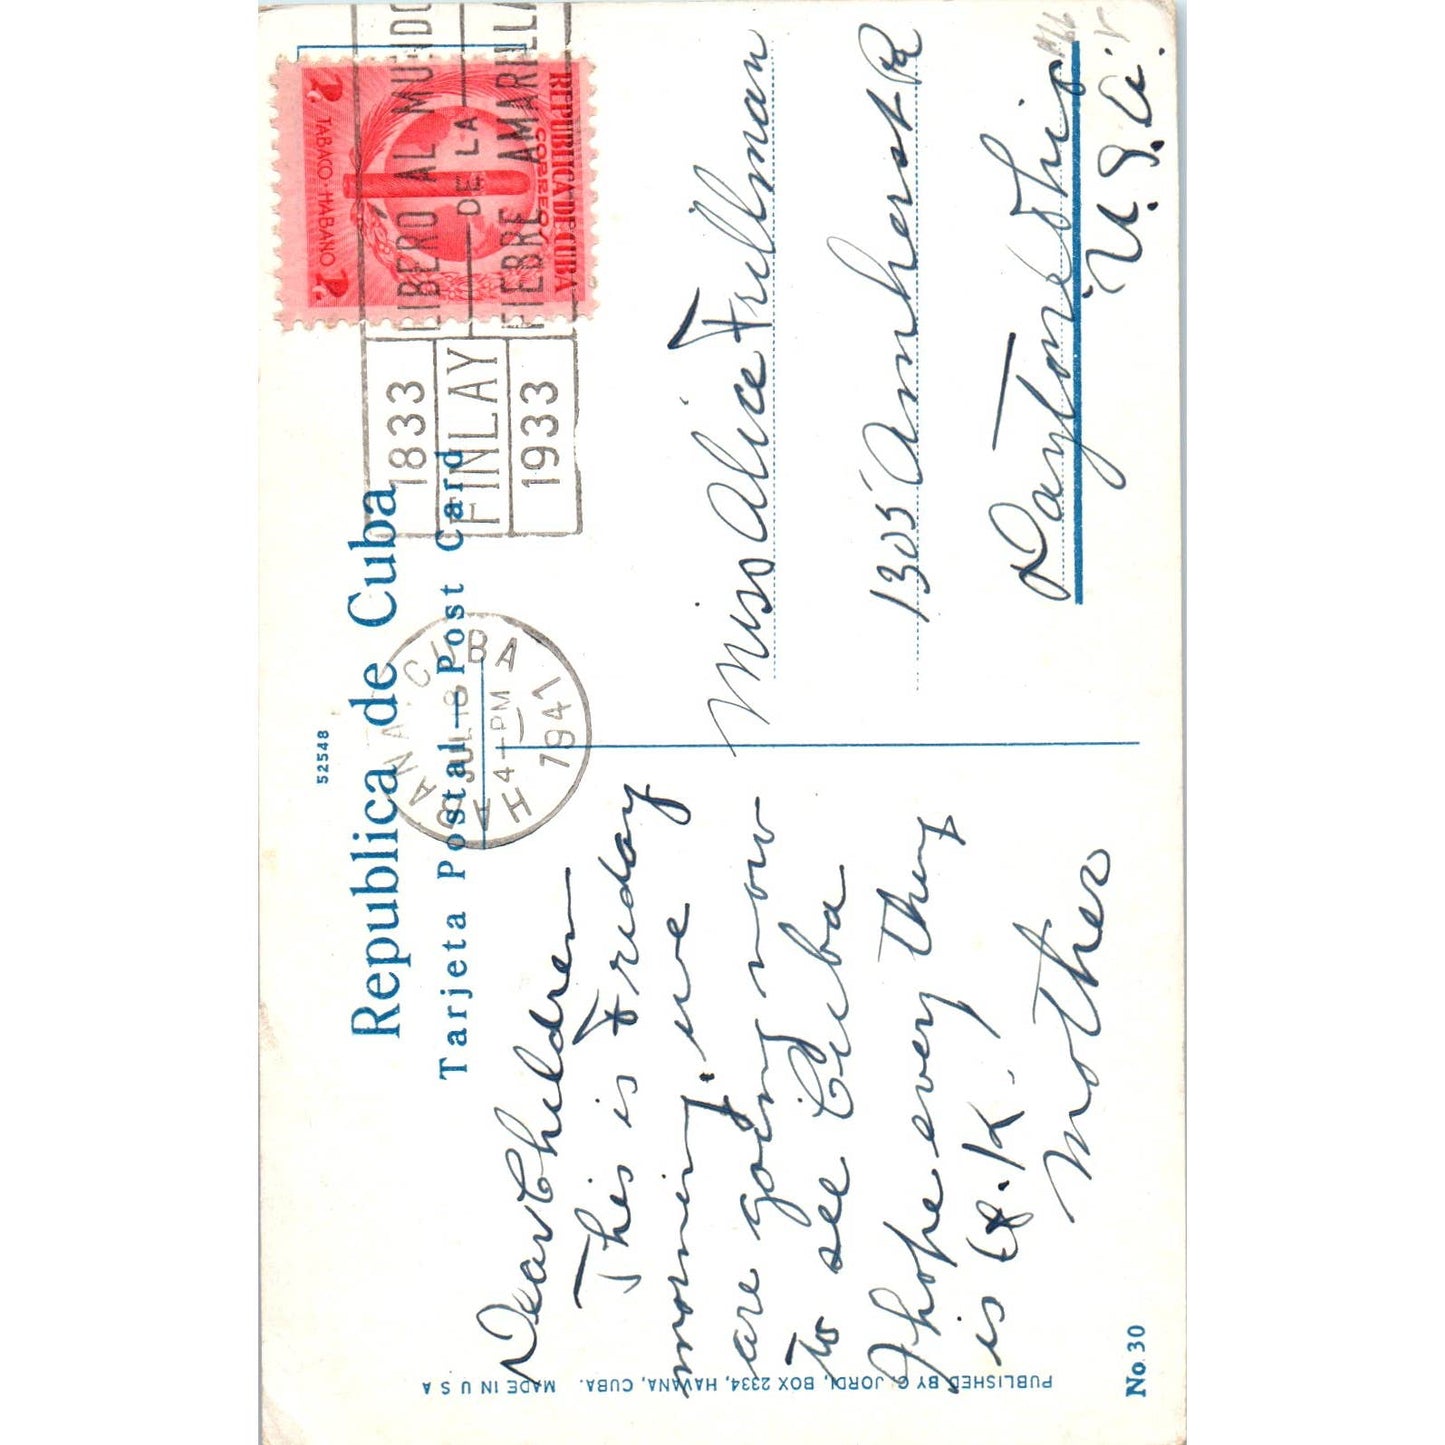 52548
Republica de Cuba
Tarjeta Postal — Post Card
REPUBLICA DE CUBA
CORREOS
2
TABACO · HABANO
1833
FINLAY
1933
LIBERÓ AL MUNDO
DE LA
FIEBRE AMARILLA
HABANA, CUBA
JUL 18
4 - PM
1941
Dear Children
This is Friday
morning. we
are going now
to see Cuba
I hope every thing
is O.K.
Mother
Miss Alice Fullman
1305 Amherst
Dayton Ohio
U.S.A.
PUBLISHED BY C. JORDI, BOX 2334, HAVANA, CUBA. MADE IN U S A
No. 30